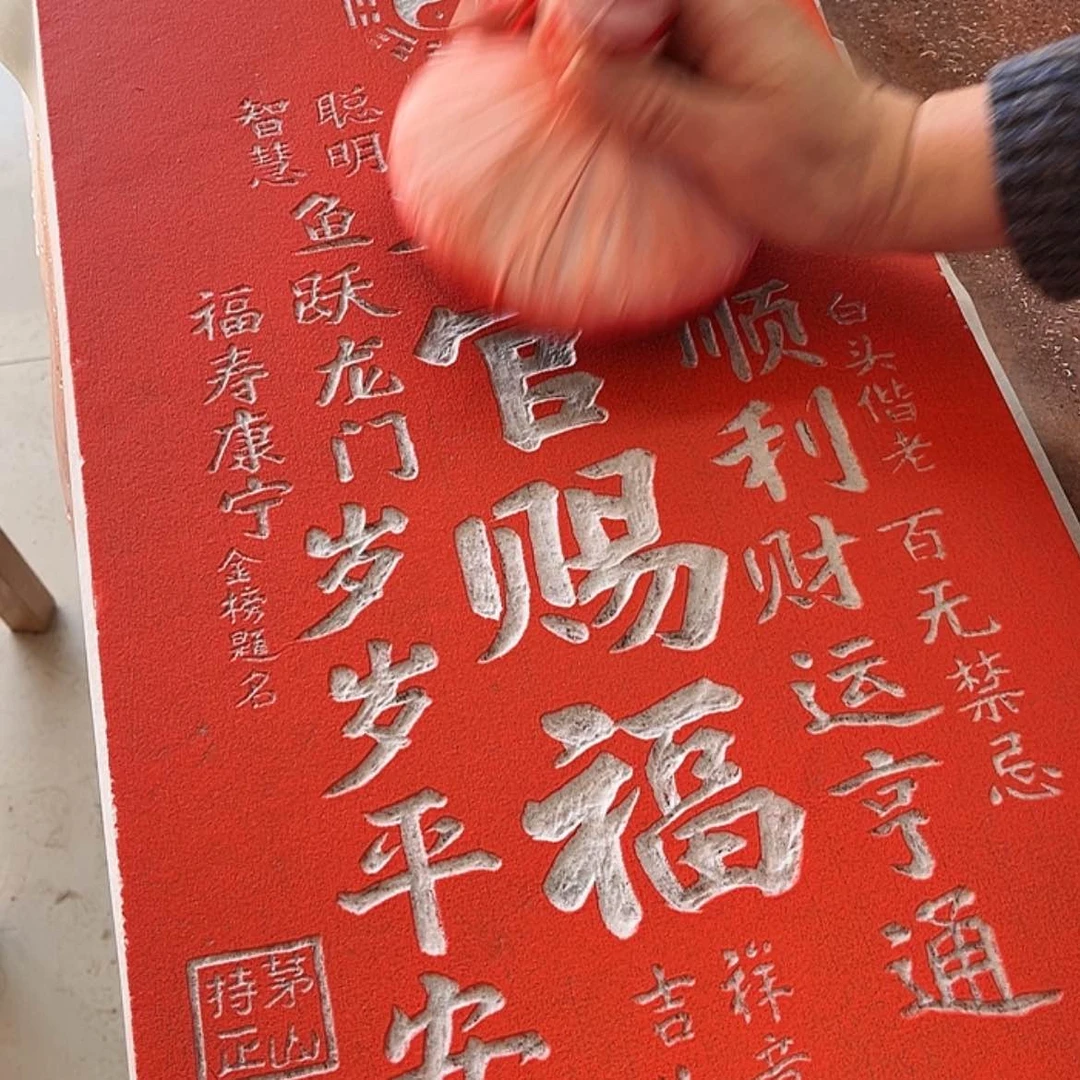 白头偕老
百无禁忌
顺利财运亨通
官赐福
祥
吉
聪明
智慧
鱼跃龙门
岁岁平安
福寿康宁
金榜題名
茅山
持正